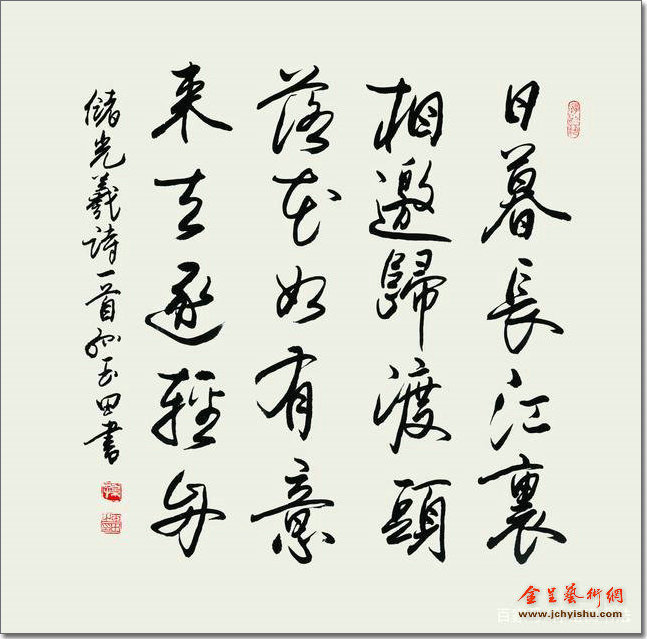 日暮長江裏
相邀歸渡頭
落花如有意
来去逐輕舟
儲光羲詩一首孫玉田書
金呈藝術網
www.jchyishu.com